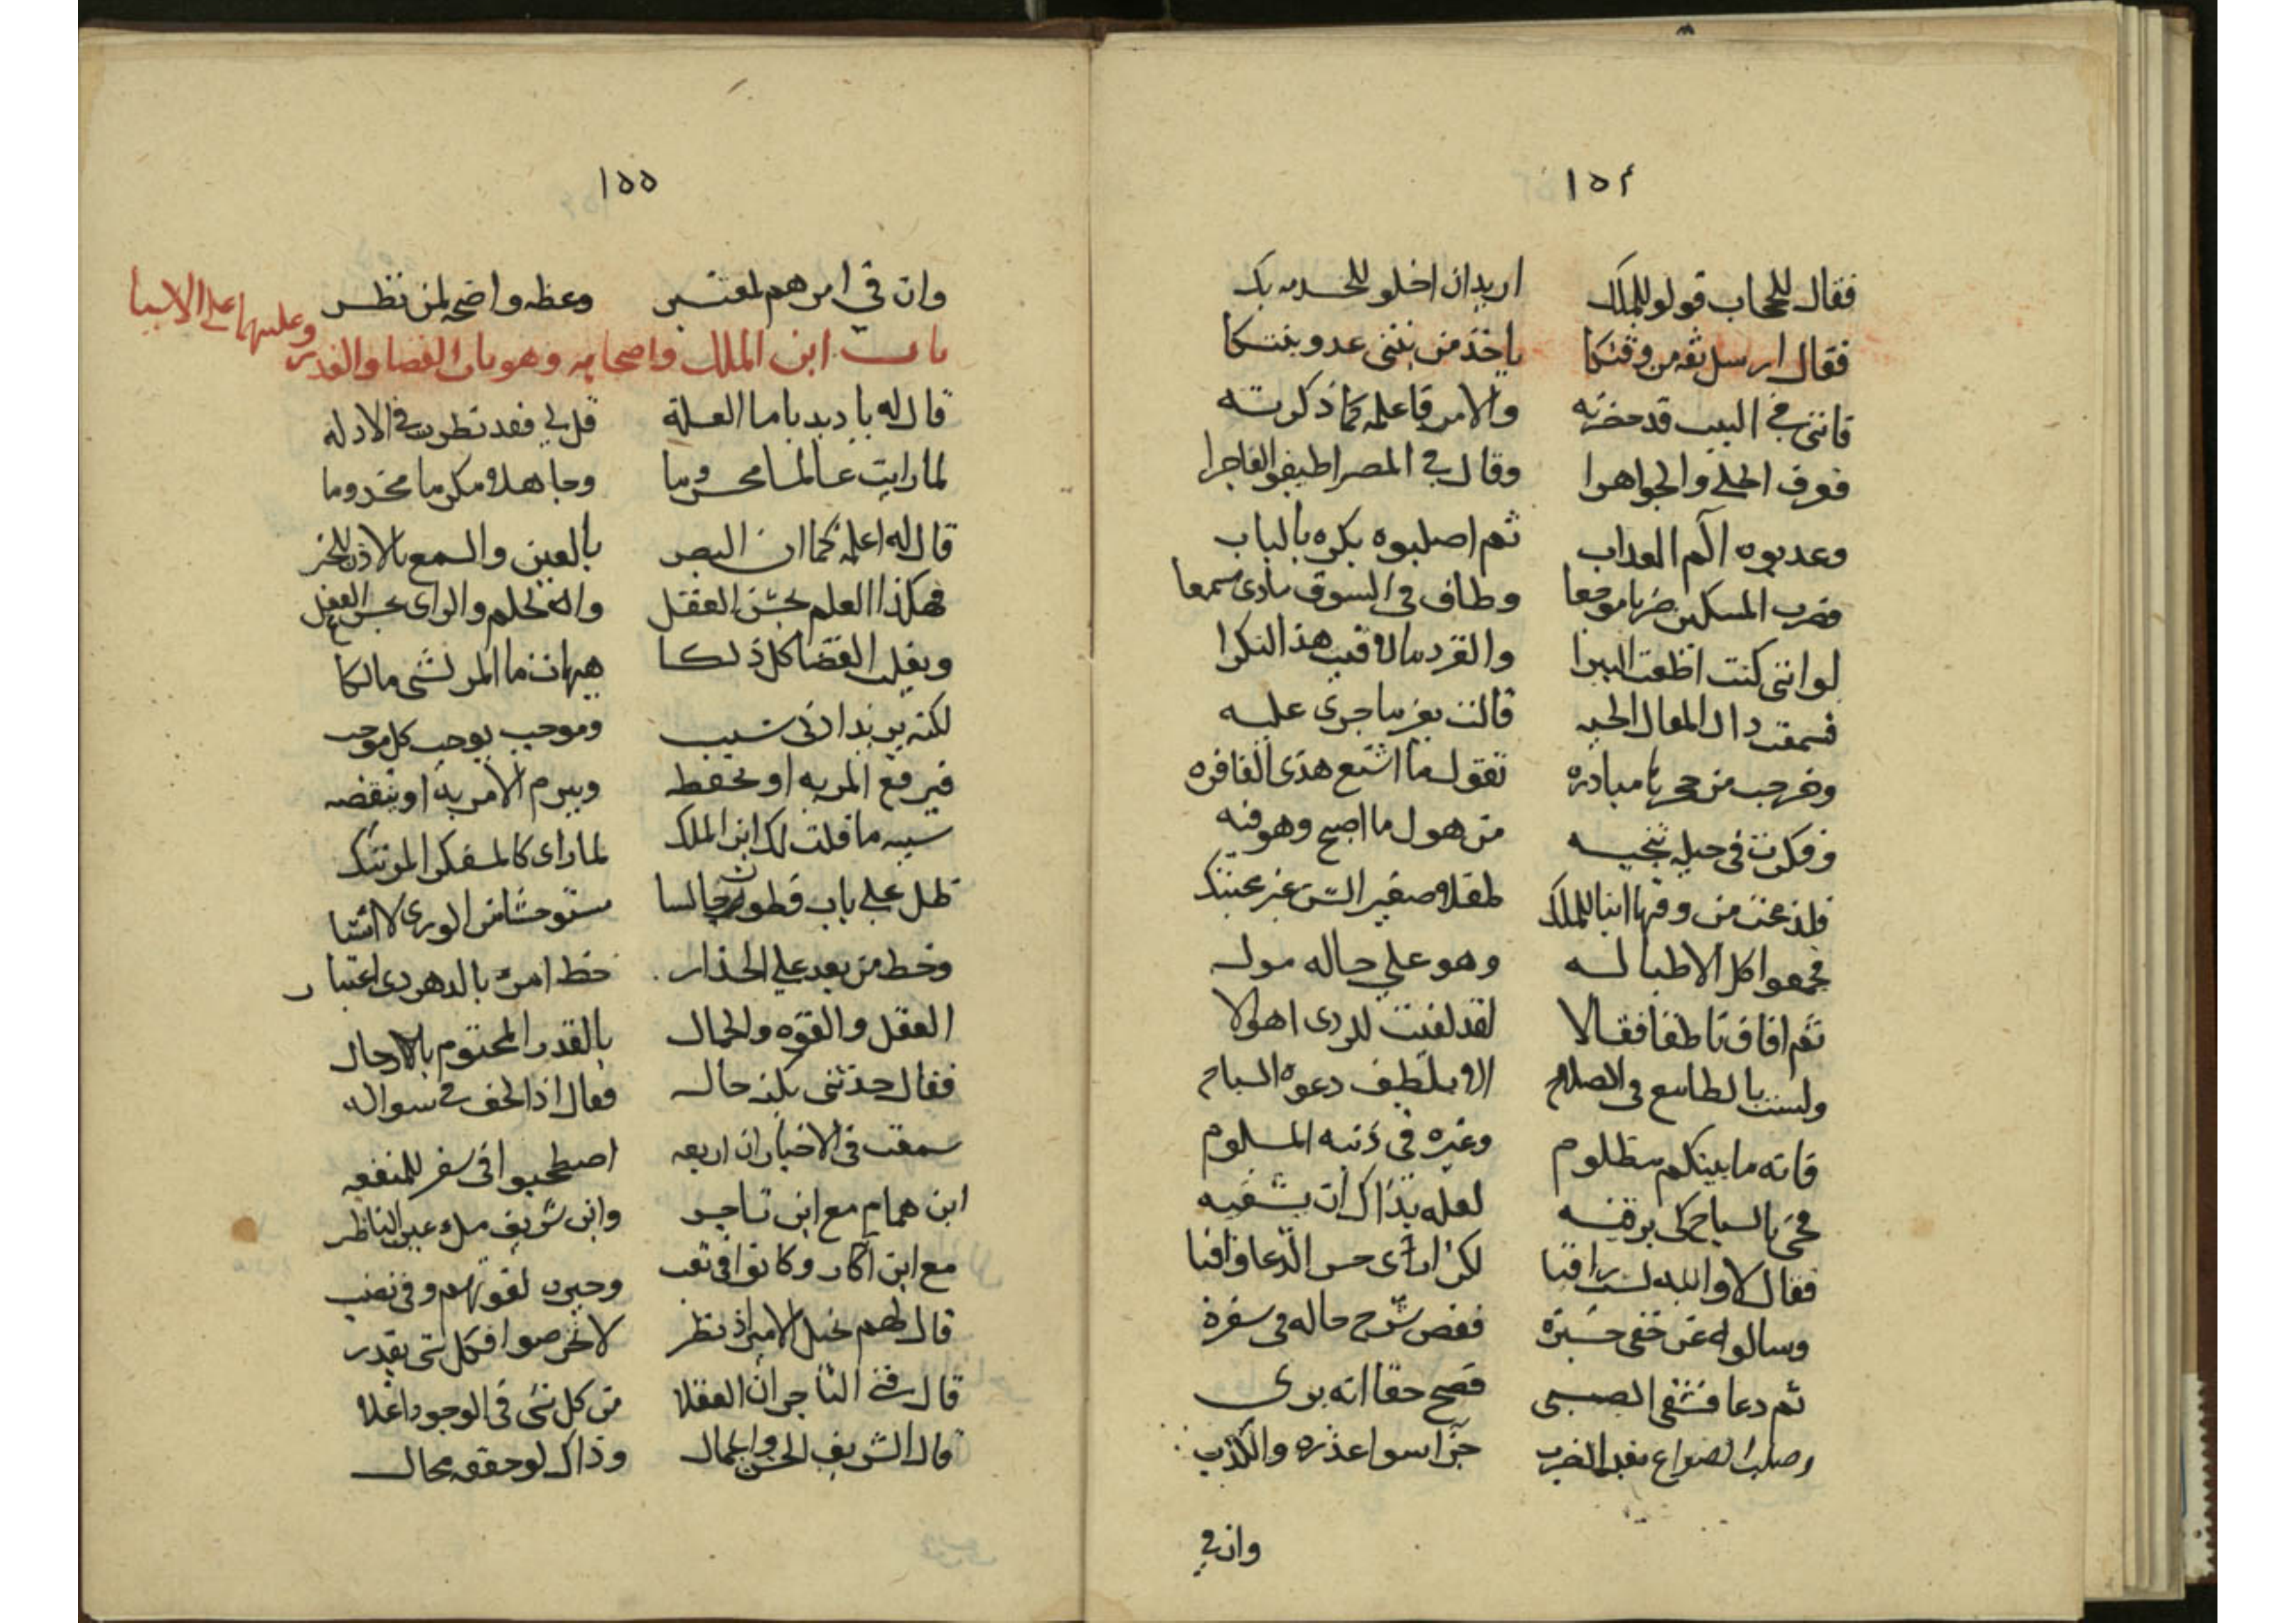 ١٥٤
فقال للحجاب قولو للملك اريد ان اخلو للخدمه بك
فقال ارسل ثقه من وقتكا ياخذ من بنتى عدو بنتكا
فاننى فى البيت قد حضرته والامر فاعلمه كما ذكرته
فعرف الحلى والجواهرا وقال فى المصر اطيفو الفاجرا
وعدبوه آلم العداب ثم اصلبوه بكره بالباب
فضرب المسكين ضربا موجعا وطاف فى السوق ينادى مسمعا
لو اننى كنت اطعت الببرا والقرد ما لاقيت هذا النكرا
فسمعت داك المقال الحيه قالت يعز ما جرى عليه
وخرجت من جحرها مبادره تقول ما اشنع هذى الفاقره
وفكرت فى حيله تنجيه من هول ما اصبح وهو فيه
فلدغت من وقتها ابنا للملك طفلا صغير السن غير محتنك
فجمعوا كل الاطبا له وهو على حاله موله
ثم افاق ناطقا فقالا لقد لقيت للردى اهوالا
ولست بالطامع فى الصلاح الا بلطف دعوة السياح
فانه ما بينكم مظلوم وغيره فى ذنبه الملوم
فجئ بالسياح كى يرقيه لعله بذاك ان يشفيه
فقال لا والله لست راقيا لكن ارى حسن الدعا واقيا
وسالوه عن خفى خبره فقص شرح حاله فى سفره
ثم دعا فشفى الصبى فصح حقا انه برى
وصلب الصواغ بعد الضرب جزا سوا غدره والكذب
وان فى
١٥٥
وان فى امرهم لمعتبر وعظه واضحه لمن نظر
باب ابن الملك واصحابه وهو باب القضا والقدر وغلبتها على الاشيا
قال له يا ديدبا ما العلة قل لى فقد نظرت فى الادله
لما رايت عالما محروما وجاهلا مكرما مخدوما
قال له اعلم كما ان البصر بالعين والسمع بالاذن للخبر
فهكذا العلم بحسن العقل والحلم والراى بحسن العقل
ويغلب القضا كل ذلكا هيهات ما المر لشى مالكا
لكنه يريد ادنى سبب وموجب يوجب كل موجب
فيرفع المر به او يخفضه ويبرم الامر به او ينقضه
شبيه ما قلت لك ابن الملك لما راى كالمفكر المرتبك
ظل على باب قطون جالسا مستوحشا من الورى لا انسا
وخط من بعد على الجدار خط امرئ بالدهر ذى اعتبار
العقل والقوه والجمال بالقدر المحتوم بالاجال
فقال حدثنى بكنه حاله فقال اذ الحف فى سواله
سمعت فى الاخبار ان اربعه اصطحبوا فى سفر للمنفعه
ابن همام مع ابن تاجر وابن شريف ملء عين الناظر
مع ابن اكار وكانوا فى تعب وحيره لقوتهم وفى نصب
قال لهم نجل الامير اذ نظر لا تحرصوا فكل شى بقدر
قال فتى التاجر ان العقلا من كل شى فى الوجود اغلا
قال الشريف الحسن والجمال وذاك لو حققه محال